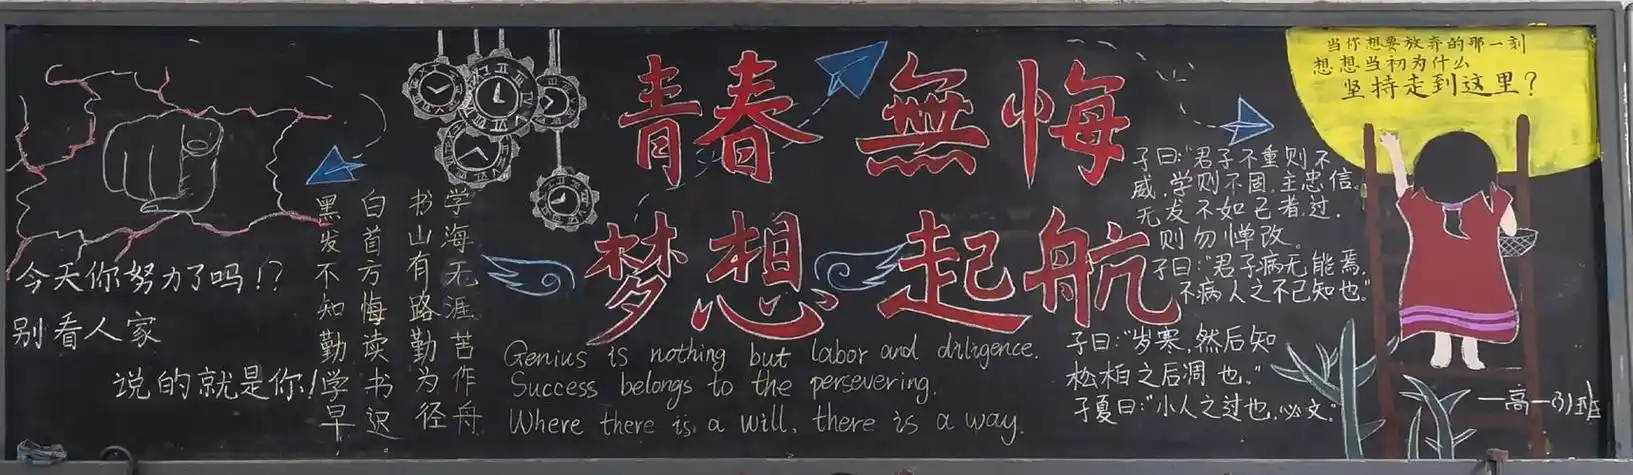 青春無悔
梦想起航
今天你努力了吗!?
别看人家
说的就是你!
学海无涯苦作舟
书山有路勤为径
白首方悔读书迟
黑发不知勤学早
Genius is nothing but labor and diligence.
Success belongs to the persevering.
Where there is a will, there is a way.
子曰:“君子不重则不
威,学则不固,主忠信。
无发不如己者,过,
则勿惮改。
子曰:“君子病无能焉,
不病人之不已知也。”
子曰:“岁寒,然后知
松柏之后凋也。”
子夏曰:“小人之过也,必文。”
当你想要放弃的那一刻
想想当初为什么
坚持走到这里?